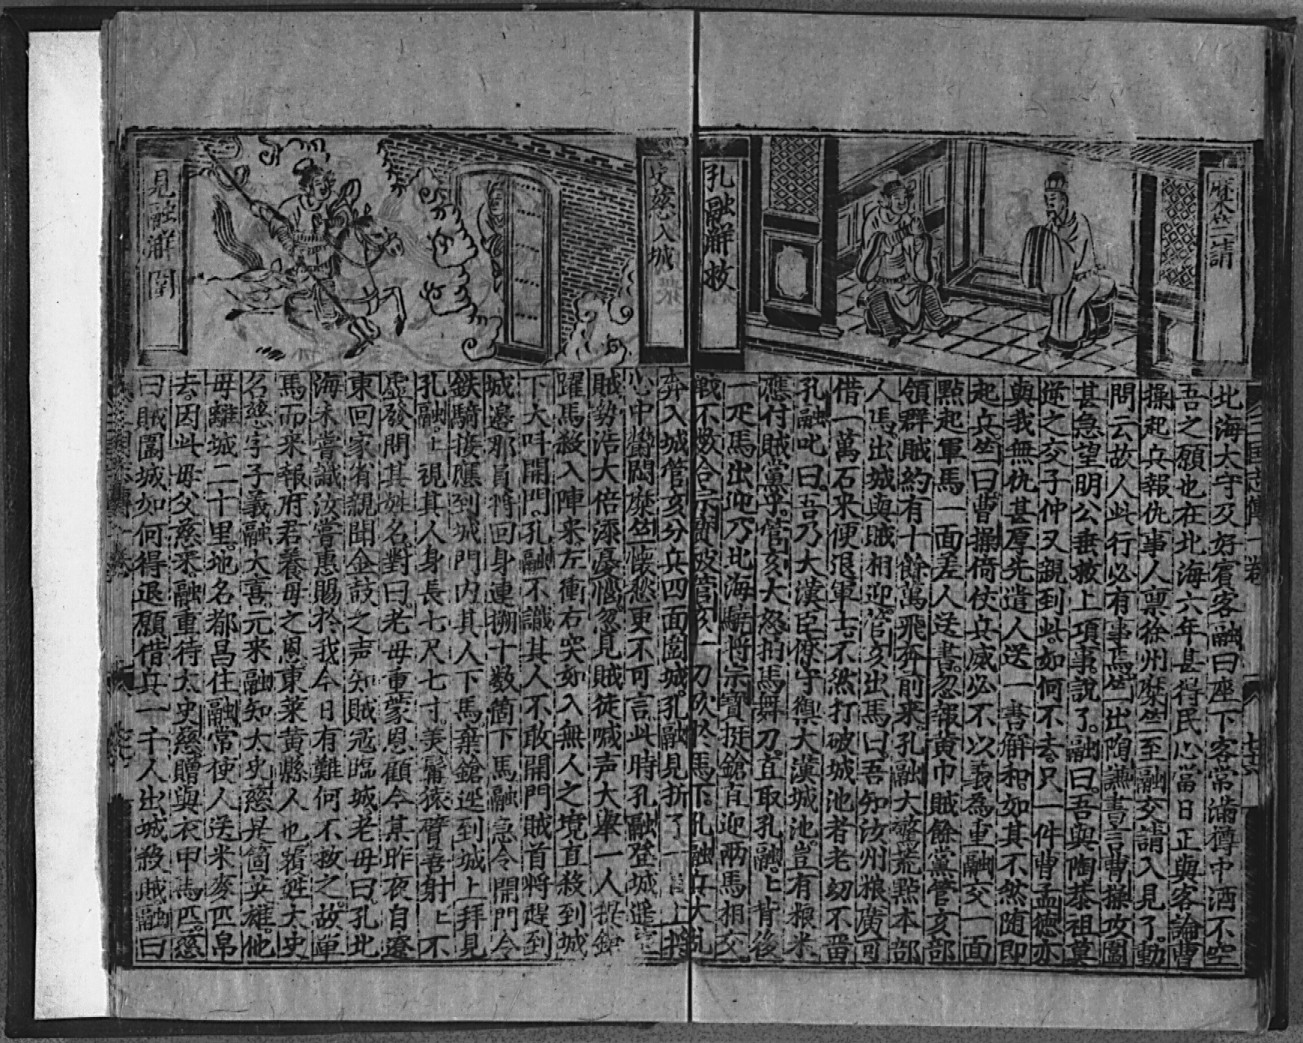 糜竺請
孔融解救
北海太守及好賓客融曰座下客常滿樽中酒不空
吾之願也在北海六年甚得民心當日正與客論曹
操起兵報仇事人稟徐州糜竺至融交請入見了動
問云故人此行必有事焉竺出陶謙書言曹操攻圍
甚急望明公垂救上項事說了融曰吾與陶恭祖莫
逆之交子仲又親到此如何不去只一件曹孟德亦
與我無仇甚厚先遣人送一書解和如其不然随即
起兵竺曰曹操倚仗兵威必不以義為重融交一面
點起軍馬一面差人送書忽報黄巾賊餘黨管亥部
領群賊約有十餘萬飛奔前来孔融大驚荒點本部
人馬出城與賊相迎管亥出馬曰吾知汝州粮廣可
借一萬石来便退軍士不然打破城池者老幼不留
孔融叱曰吾乃大漢臣僚守禦大漢城池豈有粮米
應付賊黨乎管亥大怒拍馬舞刀直取孔融上背後
一疋馬出迎乃北海驍將宗寶挺鎗直迎兩馬相交
戰不数合宗寶被管亥一刀砍於馬下孔融兵大乱
史慈入城
見融解圍
奔入城管亥分兵四面圍城孔融見折了
心中鬱悶糜竺懷愁更不可言此時孔融登城遥
賊勢浩大倍添憂惱忽見賊徒喊声大舉一人挺鎗
躍馬殺入陣来左衝右突如入無人之境直殺到城
下大叫開門孔融不識其人不敢開門賊首將趕到
城邊那員將回身連搠十数箇下馬融急令開門令
鉄騎接應到城門内其人下馬棄鎗逕到城上拜見
孔融上視其人身長七尺七寸美鬚猿臂善射上不
虚發問其姓名對曰老母重蒙恩顧今某昨夜自遼
東回家省親聞金鼓之声知賊冦臨城老母曰孔北
海未嘗識汝嘗惠賜於我今日有難何不救之故单
馬而来報府君養母之恩東莱黄縣人也覆姓太史
名慈字子義融大喜元来融知太史慈是箇英雄他
毋離城二十里地名都昌住融常使人送米麥匹帛
去因此毋父慈来融重待太史慈贈與衣甲馬匹慈
曰賊圍城如何得退願借兵一千人出城殺賊融曰